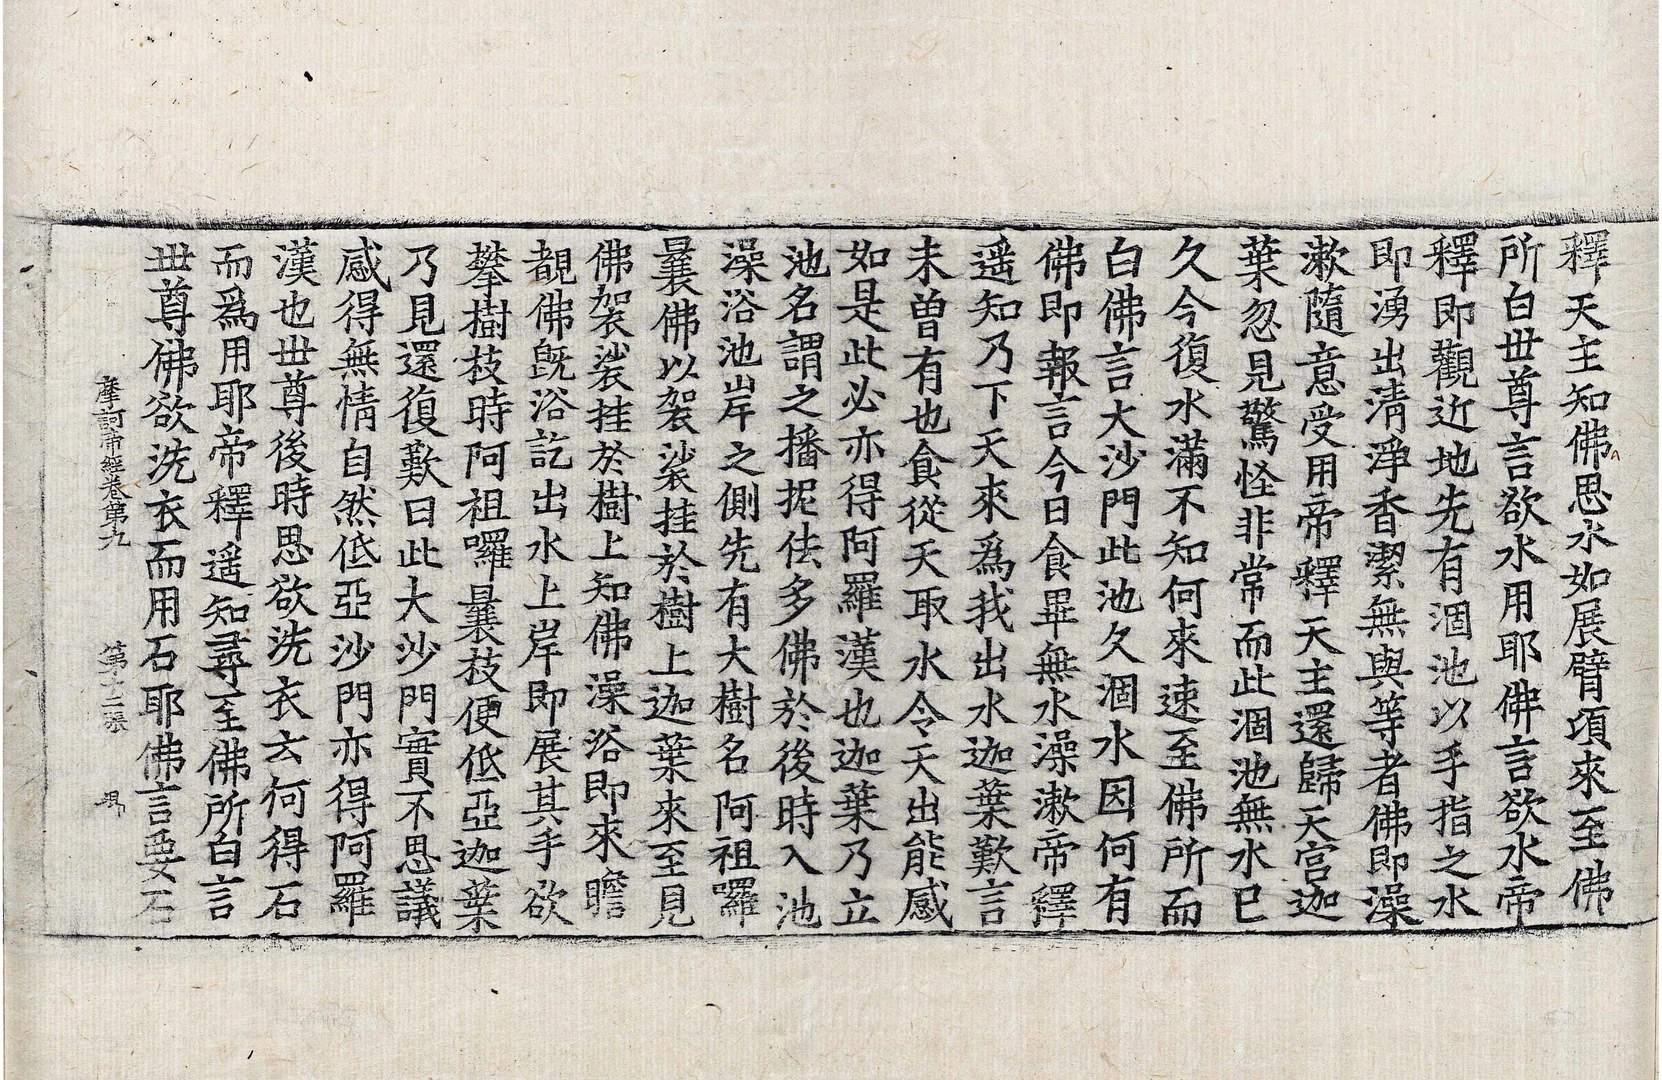 釋天主知佛思水如展臂頃來至佛
所白世尊言欲水用耶佛言欲水帝
釋即觀近地先有涸池以手指之水
即湧出清淨香潔無與等者佛即澡
漱隨意受用帝釋天主還歸天宮迦
葉忽見驚怪非常而此涸池無水已
久今復水滿不知何來速至佛所而
白佛言大沙門此池久涸水因何有
佛即報言今日食畢無水澡漱帝釋
遥知乃下天來爲我出水迦葉歎言
未曾有也食從天取水令天出能感
如是此必亦得阿羅漢也迦葉乃立
池名謂之播抳佉多佛於後時入池
澡浴池岸之側先有大樹名阿祖囉
曩佛以袈裟挂於樹上迦葉來至見
佛袈裟挂於樹上知佛澡浴即來瞻
覩佛旣浴訖出水上岸即展其手欲
攀樹枝時阿祖囉曩枝便低亞迦葉
乃見還復歎曰此大沙門實不思議
感得無情自然低亞沙門亦得阿羅
漢也世尊後時思欲洗衣云何得石
而爲用耶帝釋遥知尋至佛所白言
世尊佛欲洗衣而用石耶佛言要石
摩訶帝經卷第九 第 張